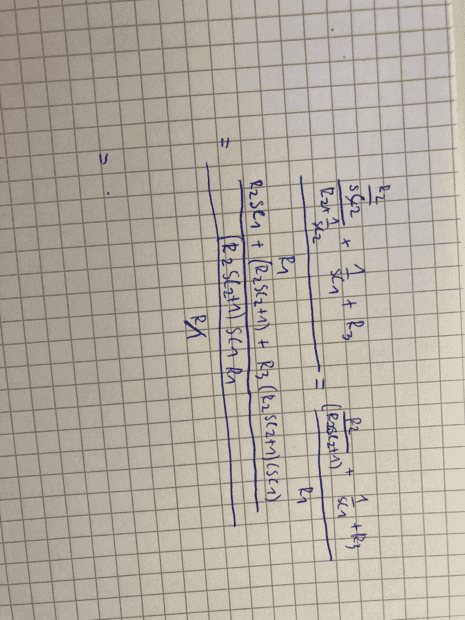 (R2/SC2)/(R2+1/SC2) + 1/SC1 + R3 / R1 = R2/(R2SC2+1) + 1/SC1 + R3 / R1
= R2SC1 + (R2SC2+1) + R3(R2SC2+1)(SC1) / (R2SC2+1)SC1 R1
=